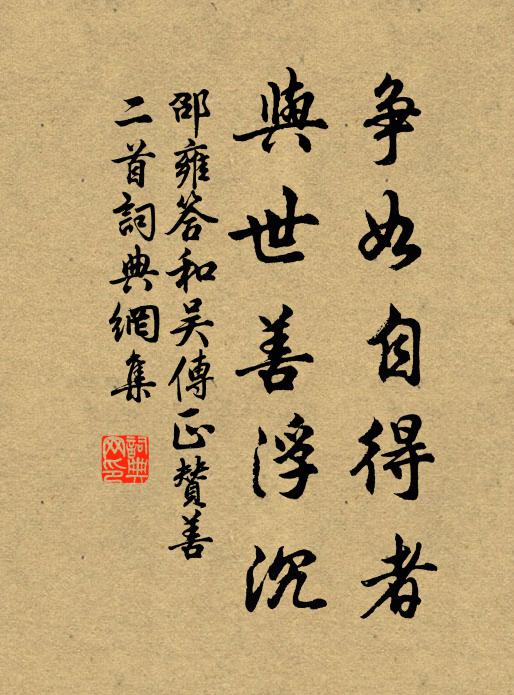 争如自得者
與世善浮沉
邵雍答和吴傳正贊善
二首詞典網集
詞典
网印